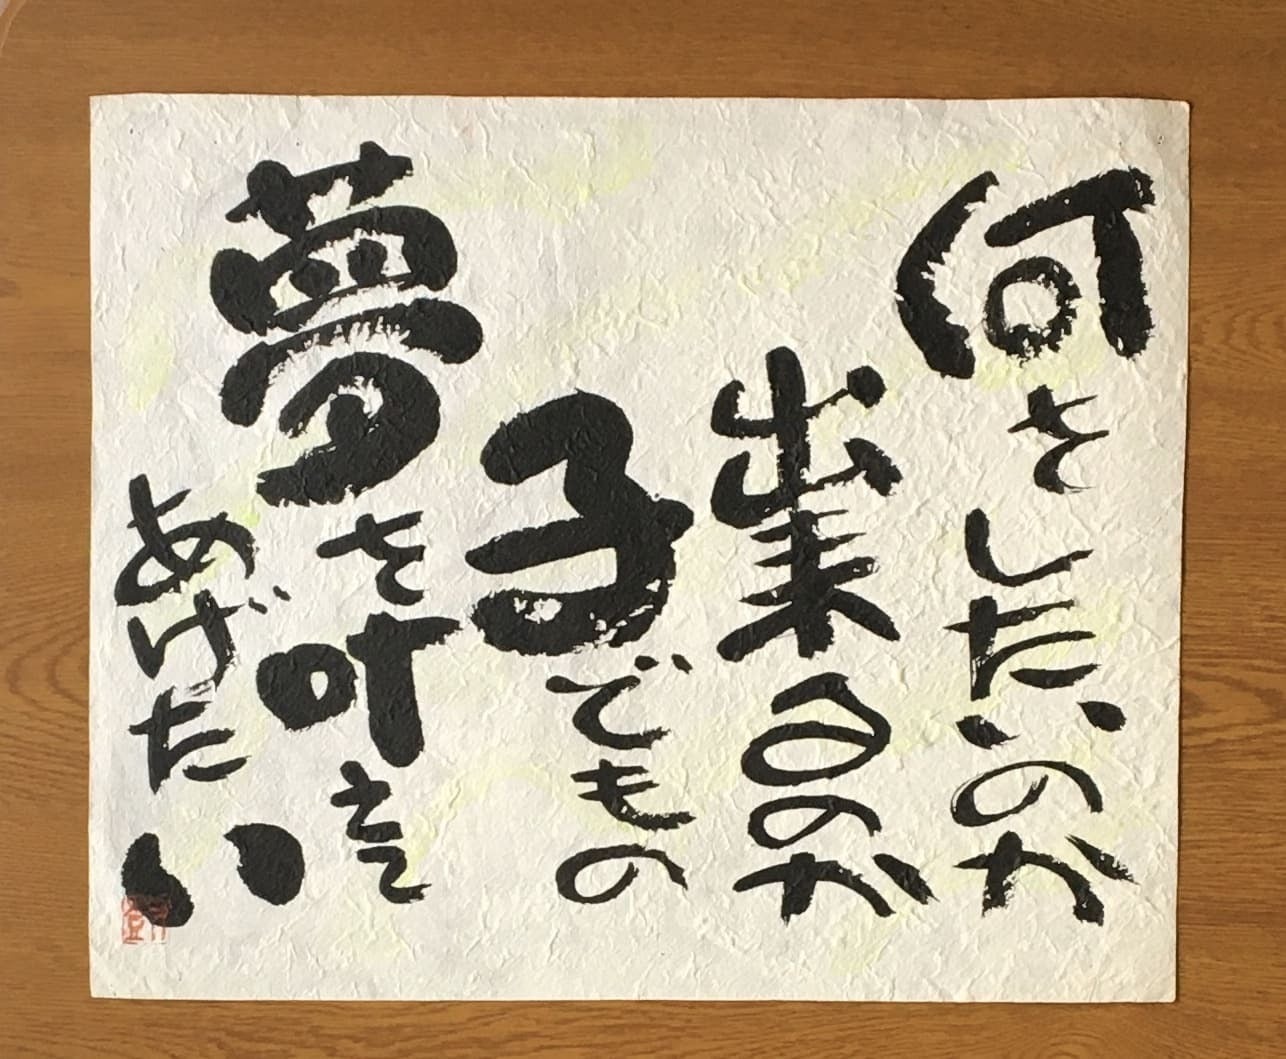 何をしたいのか
出来るのか
子でもの
夢を叶えて
あげたい